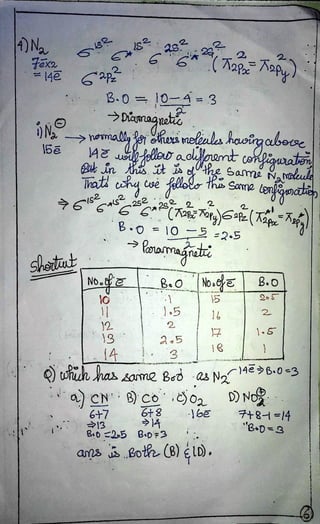 4) N₂
7e×2
= 14ē
6^1s² 6*^1s² 6^2s² 6*^2s² (π2px² = π2py²)
6^2pz²
B.O = 10-4/2 = 3
→ Diamagnetic
i) N₂⊖ → normally for others molecules having above
15ē 14ē will follow a different configuration
But in this it is of the same N₂ molecule
That's why we follow the same configuration
→ 6^1s² 6*^1s² 6^2s² 6*^2s² (π2px² = π2py²) 6^2pz² (π*2px¹ = π*2py)
B.O = 10-5/2 = 2.5
→ Paramagnetic
Shortcut
No. of ē B.O No. of ē B.O
10 1 15 2.5
11 1.5 16 2
12 2 17 1.5
13 2.5 18 1
14 3
Q) which has same B.O as N₂ 14ē → B.O=3
a) CN B) CO c) O₂ D) NO⊕
6+7 6+8 16ē 7+8-1=14
⇒13 ⇒14 B.O=3
B.O=2.5 B.O=3
ans is Both (B) & (D).
6